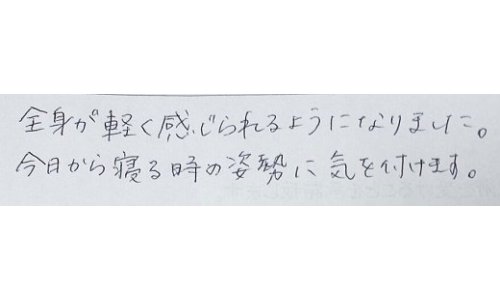 全身が軽く感じられるようになりました。
今日から寝る時の姿勢に気を付けます。